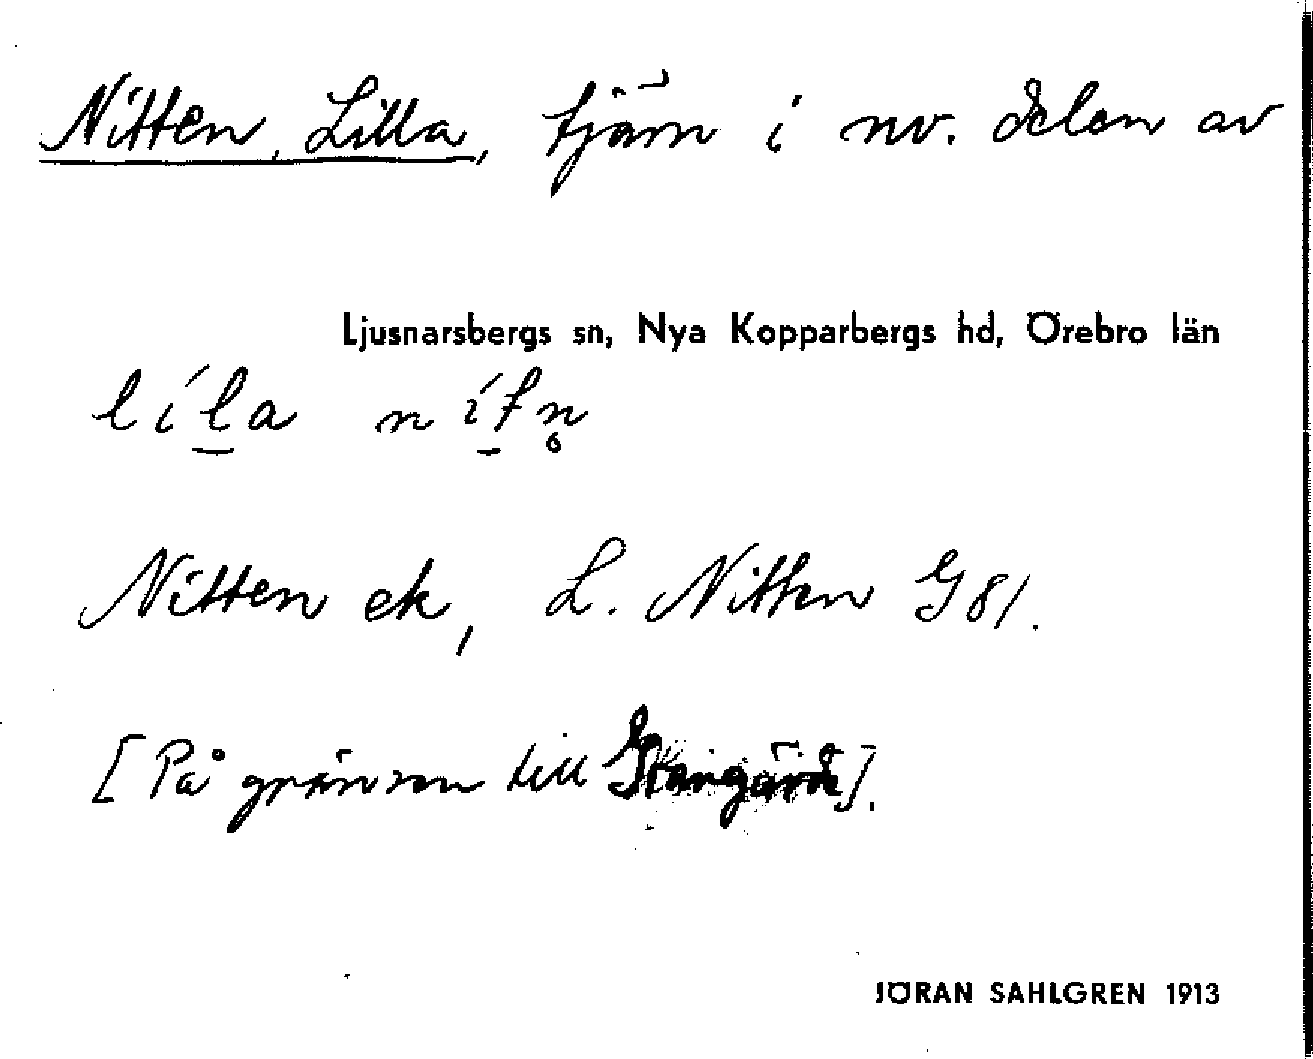 Nitten, Lilla, tjärn i nv. delen av
Ljusnarsbergs sn, Nya Kopparbergs hd, Örebro län
líl̠a ní̠tn̥
Nitten ek, L. Nitten G81.
[På gränsen till Grangärde].
JÖRAN SAHLGREN 1913